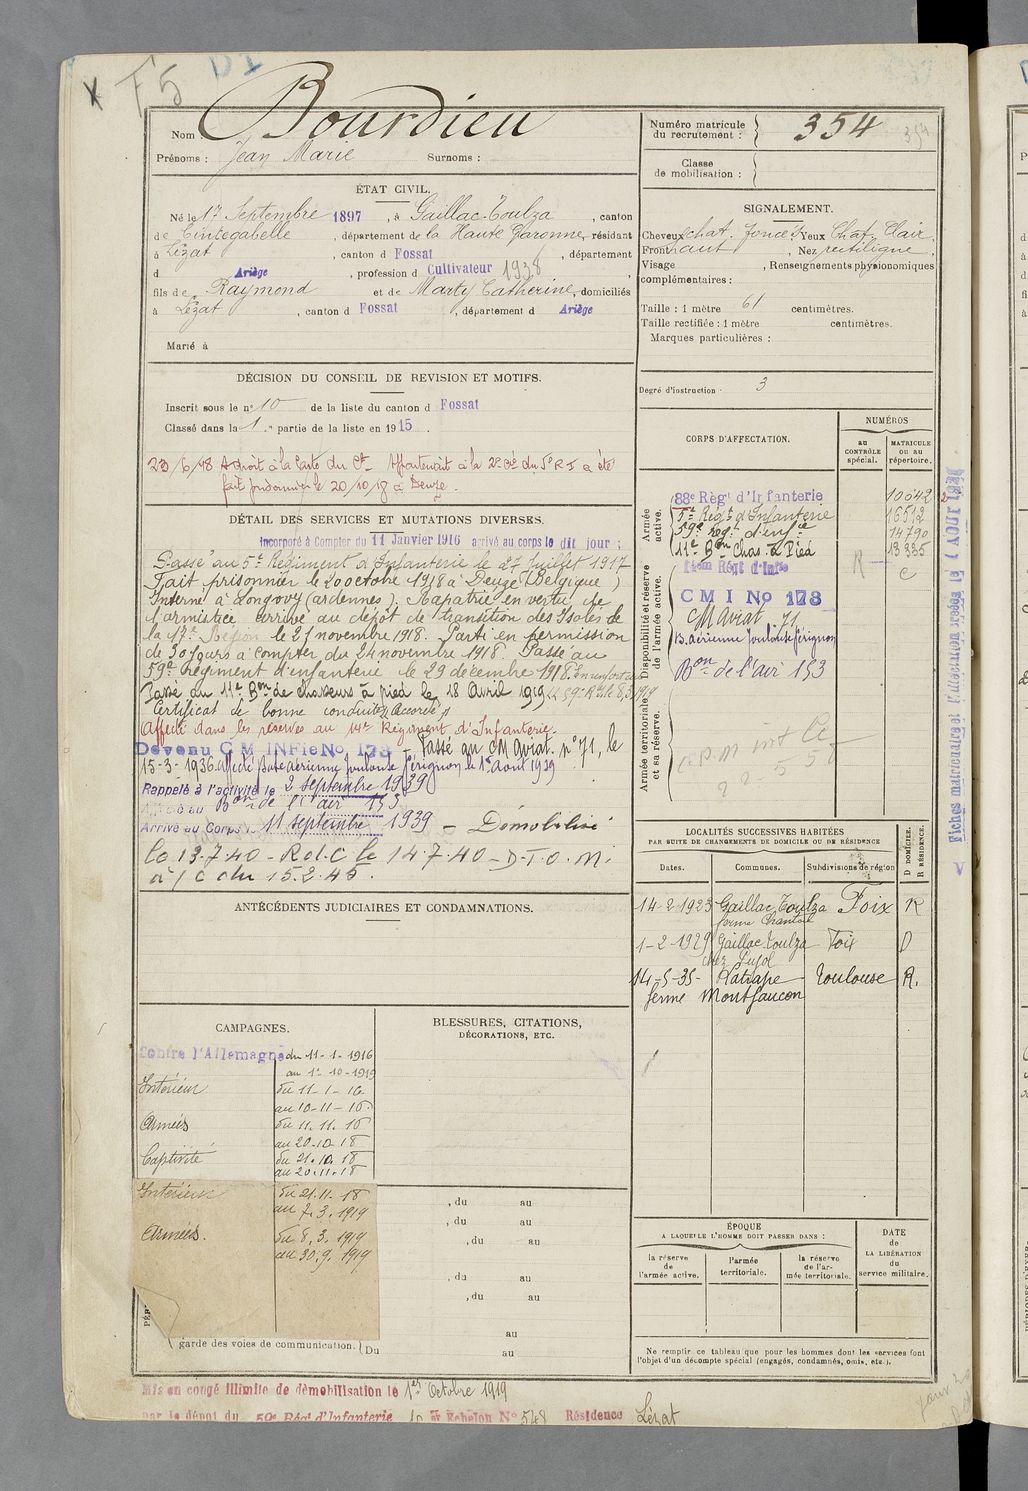 F5
D1
Nom : Bourdieu
Prénoms : Jean Marie Surnoms :
ÉTAT CIVIL.
Né le 17 Septembre 1897, à Gaillac-Toulza, canton
de Cintegabelle, département de la Haute Garonne, résidant
à Lézat, canton d Fossat, département
d Ariège, profession d Cultivateur 1938,
fils de Raymond et de Marty Catherine, domiciliés
à Lézat, canton d Fossat, département d Ariège
Marié à
DÉCISION DU CONSEIL DE REVISION ET MOTIFS.
Inscrit sous le n° 10 de la liste du canton d Fossat
Classé dans la 1re partie de la liste en 1915.
23/6/48 A droit à la Carte du Ct. Appartenait à la 2e Cie du 5e R I a été
fait prisonnier le 20/10/18 à Deuze.
DÉTAIL DES SERVICES ET MUTATIONS DIVERSES.
Incorporé à Compter du 11 Janvier 1916 arrivé au corps le dit jour ;
Passé au 5e Régiment d'Infanterie le 27 Juillet 1917
Fait prisonnier le 20 octobre 1918 à Deuze (Belgique)
Interné à Longovy (ardennes). Rapatrié en vertu de
l'armistice arrivé au dépôt de transition des Isolés de
la 17e Région le 21 novembre 1918. Parti en permission
de 30 jours à compter du 24 novembre 1918. Passé au
59e Régiment d'infanterie le 29 décembre 1918.
Passé au 11e Bon de chasseurs à pied le 18 Avril 1919
Certificat de bonne conduite "Accordé"
Affecté dans les réserves au 14e Régiment d'Infanterie.
Devenu C M INFie No 178 - Passé au CM Aviat. n° 71, le
15-3-1936. Affecté Base aérienne Toulouse Pérignon le 1er Août 1939
Rappelé à l'activité le 2 septembre 1939
Affecté au Bon de l'air 153
Arrivé au Corps le 11 septembre 1939 - Démobilisé
le 13.7.40 - R d C le 14.7.40 - D.T.O.M.
à/c du 15.2.45.
ANTÉCÉDENTS JUDICIAIRES ET CONDAMNATIONS.
CAMPAGNES.
Contre l'Allemagne du 11-1-1916
au 1er-10-1919
Intérieur du 11-1-16
au 10-11-16
Armées du 11.11.16
au 20-10-18
Captivité du 21.10.18
au 20.11.18
Intérieur du 21.11.18
au 7.3.1919
Armées. du 8.3.1919
au 30.9.1919
garde des voies de communication. Du
BLESSURES, CITATIONS,
DÉCORATIONS, ETC.
, du au
, du au
, du au
, du au
, du au
au
au
Mis en congé illimité de démobilisation le 1er Octobre 1919
par le dépôt du 59e Régt d'Infanterie Echelon No 548 Résidence Lézat
Numéro matricule
du recrutement : 354
354
Classe
de mobilisation :
SIGNALEMENT.
Cheveux chat. foncé, Yeux Chat. Clair,
Front haut, Nez rectiligne,
Visage , Renseignements physionomiques
complémentaires :
Taille : 1 mètre 61 centimètres.
Taille rectifiée : 1 mètre centimètres.
Marques particulières :
Degré d'instruction : 3
CORPS D'AFFECTATION.
NUMÉROS
AU
CONTRÔLE
spécial.
MATRICULE
OU AU
répertoire.
Armée
active.
Disponibilité et réserve
de l'armée active.
Armée territoriale
et sa réserve.
88e Régt d'Infanterie 10542
5e Régt d'Infanterie 16512
59e Régt d'infie 14790
11e Bon Chas. à Pied 13335
14em Régt d'Infie
R
C
C M I No 178
CM Aviat. 71
B. Aérienne Toulouse Pérignon
Bon de l'air 153
LOCALITÉS SUCCESSIVES HABITÉES
PAR SUITE DE CHANGEMENTS DE DOMICILE OU DE RÉSIDENCE
D DOMICILE.
R RÉSIDENCE.
Dates. Communes. Subdivisions de région
14-2-1923 Gaillac Toulza Foix R
ferme
1-2-1929 Gaillac-Toulza Foix D
chez Pujol
14-5-35- Natrape Toulouse R.
ferme Montfaucon
ÉPOQUE
A LAQUELLE L'HOMME DOIT PASSER DANS :
la réserve
de
l'armée active.
l'armée
territoriale.
la réserve
de l'ar-
mée territoriale.
DATE
de
LA LIBÉRATION
du
service militaire.
Ne remplir ce tableau que pour les hommes dont les services font
l'objet d'un décompte spécial (engagés, condamnés, omis, etc.).